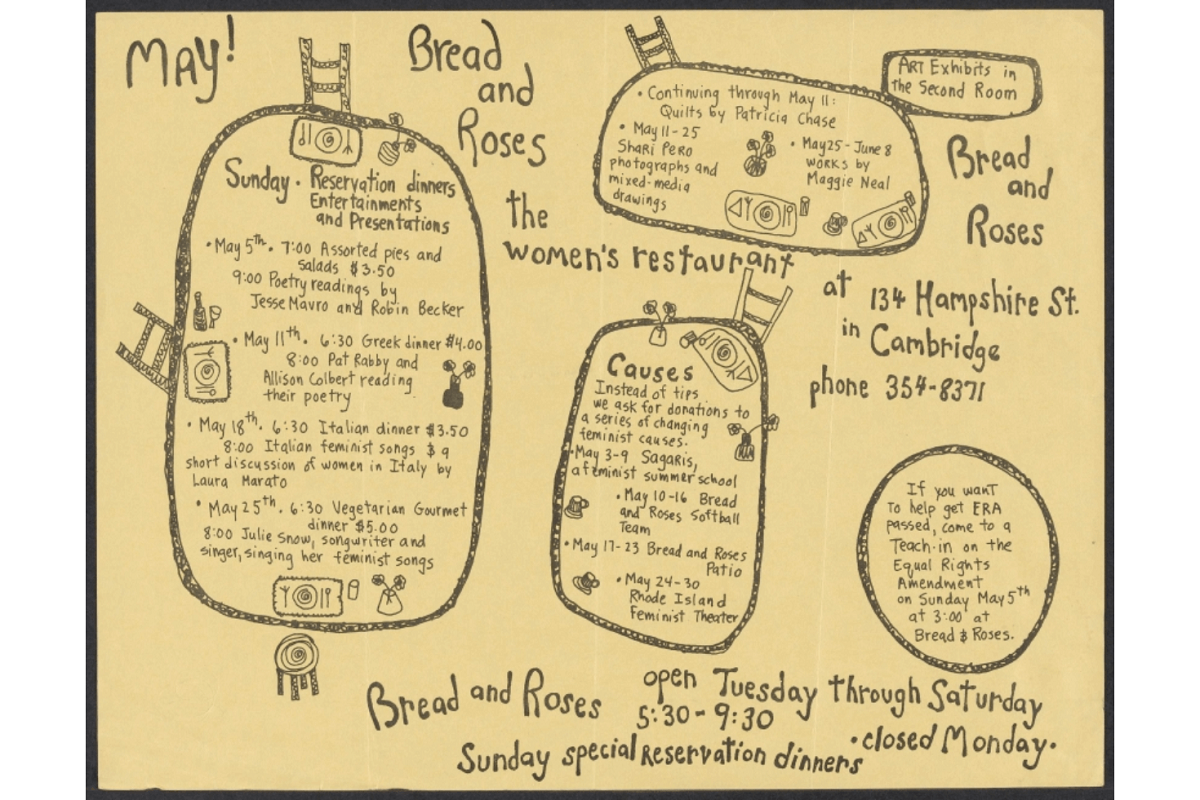 May!
Bread
and
Roses
the
women's restaurant
Sunday · Reservation dinners
Entertainments
and Presentations
• May 5th. 7:00 Assorted pies and
salads $3.50
9:00 Poetry readings by
Jesse Mavro and Robin Becker
• May 11th. 6:30 Greek dinner $4.00
8:00 Pat Rabby and
Allison Colbert reading
their poetry
• May 18th. 6:30 Italian dinner $3.50
8:00 Italian feminist songs & a
short discussion of women in Italy by
Laura Marato
• May 25th. 6:30 Vegetarian Gourmet
dinner $5.00
8:00 Julie Snow, songwriter and
singer, singing her feminist songs
Art Exhibits in
the Second Room
• Continuing through May 11:
Quilts by Patricia Chase
• May 11-25
Shari Pero
photographs and
mixed-media
drawings
• May 25 - June 8
works by
Maggie Neal
Bread
and
Roses
at 134 Hampshire St.
in Cambridge
phone 354-8371
Causes
Instead of tips
we ask for donations to
a series of changing
feminist causes.
• May 3-9 Sagaris,
a feminist summer school
• May 10-16 Bread
and Roses Softball
Team
• May 17-23 Bread and Roses
Patio
• May 24-30
Rhode Island
Feminist Theater
If you want
to help get ERA
passed, come to a
Teach-in on the
Equal Rights
Amendment
on Sunday May 5th
at 3:00 at
Bread & Roses.
Bread and Roses
open Tuesday through Saturday
5:30 - 9:30
· closed Monday ·
Sunday special Reservation dinners